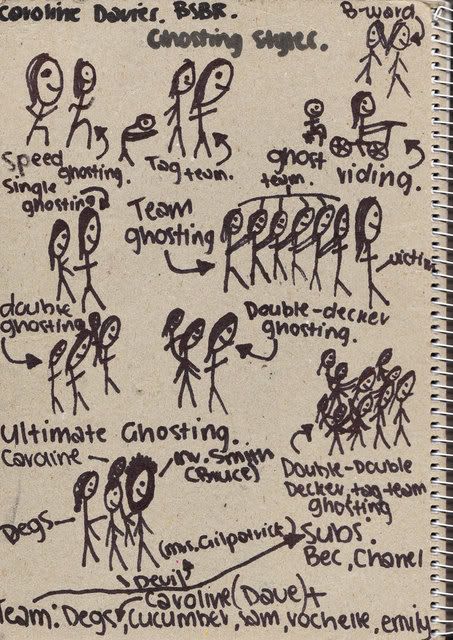 Caroline Davies. BSBR.
B-ward
Ghosting Styles.
Speed ghosting.
Tag team.
ghost team.
riding.
Single ghosting
Team ghosting
victim
double ghosting
Double-decker ghosting.
Ultimate Ghosting.
Caroline
Mr. Smith (Bruce)
Degs
Double-Double Decker, tag-team ghosting
(Mrs. Gilpatrick)
Subs.
Bec, Chanel
Devil
Caroline (Dave) +
Team: Degs, Cucumber, Sam, rochelle, emily